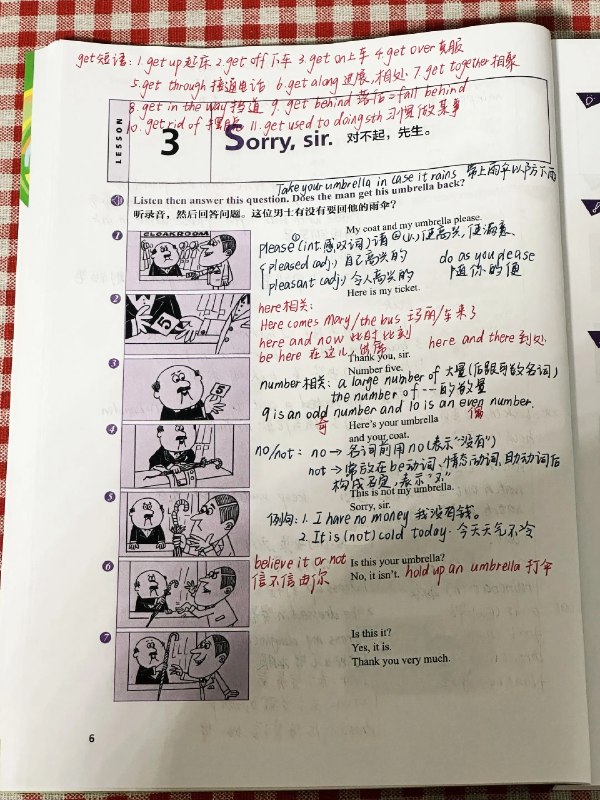 get短语：1.get up 起床 2.get off下车 3.get on上车 4.get over克服
5.get through 接通电话 6.get along 进展,相处 7.get together相聚
8.get in the way 挡道 9.get behind 落伍=fall behind
10.get rid of 摆脱 11.get used to doing sth 习惯做某事
LESSON
3 Sorry, sir. 对不起，先生。
Take your umbrella in case it rains 带上雨伞以防下雨
Listen then answer this question. Does the man get his umbrella back?
听录音，然后回答问题。这位男士有没有要回他的雨伞？
1
CLOAKROOM
My coat and my umbrella please.
please ①(int.感叹词)请 ②(v.)使高兴,使满意
pleased (adj.) 自己高兴的 do as you please
pleasant (adj.) 令人高兴的 随你的便
Here is my ticket.
2
5
here相关：
Here comes Mary/the bus 玛丽/车来了
here and now 此时此刻 here and there 到处
be here 在这儿,
Thank you, sir.
3
5
Number five.
number相关：a large number of 大量(后跟可数名词)
the number of ……的数量
9 is an odd number and 10 is an even number.
奇 偶
4
Here's your umbrella
and your coat.
no/not：no → 名词前用no(表示"没有")
not → 常放在be动词、情态动词、助动词后
构成否定,表示"不"
5
This is not my umbrella.
Sorry, sir.
例句：1. I have no money 我没有钱。
2. It is (not) cold today. 今天天气不冷
6
believe it or not
信不信由你
Is this your umbrella?
No, it isn't. hold up an umbrella 打伞
7
Is this it?
Yes, it is.
Thank you very much.
6